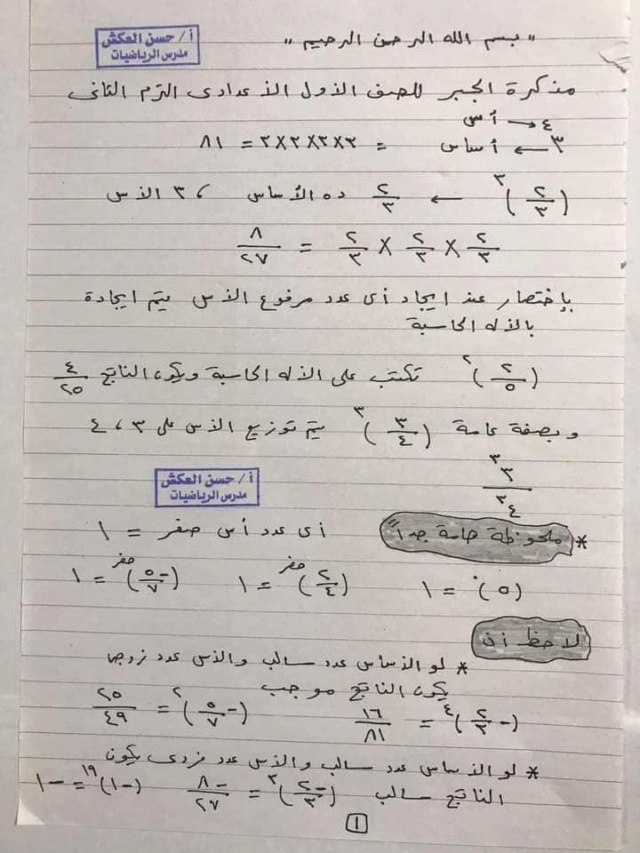 أ / حسن العكش
مدرس الرياضيات
" بسم الله الرحمن الرحيم "
مذكرة الجبر للصف الأول الأعدادى الترم الثانى
٤ → أس
٣ ← أساس = ٣×٣×٣×٣ = ٨١
(٢/٣)^٣ ← ٢/٣ ده الأساس ، ٣ الأس
٢/٣ × ٢/٣ × ٢/٣ = ٨/٢٧
بإختصار عند ايجاد أى عدد مرفوع الأس يتم ايجادة
بالآله الحاسبة
(٢/٥)^٢ تكتب على الآله الحاسبة ويكون الناتج ٤/٢٥
وبصفة عامة (٣/٤)^٣ يتم توزيع الأس على ٣ ، ٤
٣^٣/٤^٣
أ / حسن العكش
مدرس الرياضيات
* ملحوظة هامة جداً أى عدد أس صفر = ١
(٥)^٠ = ١ (٢/٤)^صفر = ١ (-٥/٧)^صفر = ١
لاحظ أن
* لو الأساس عدد سالب والأس عدد زوجى
يكون الناتج موجب
(-٢/٣)^٤ = ١٦/٨١ (-٥/٧)^٢ = ٢٥/٤٩
* لو الأساس عدد سالب والأس عدد فردى يكون
الناتج سالب (-٢/٣)^٣ = -٨/٢٧ (-١)^١٩ = -١
١